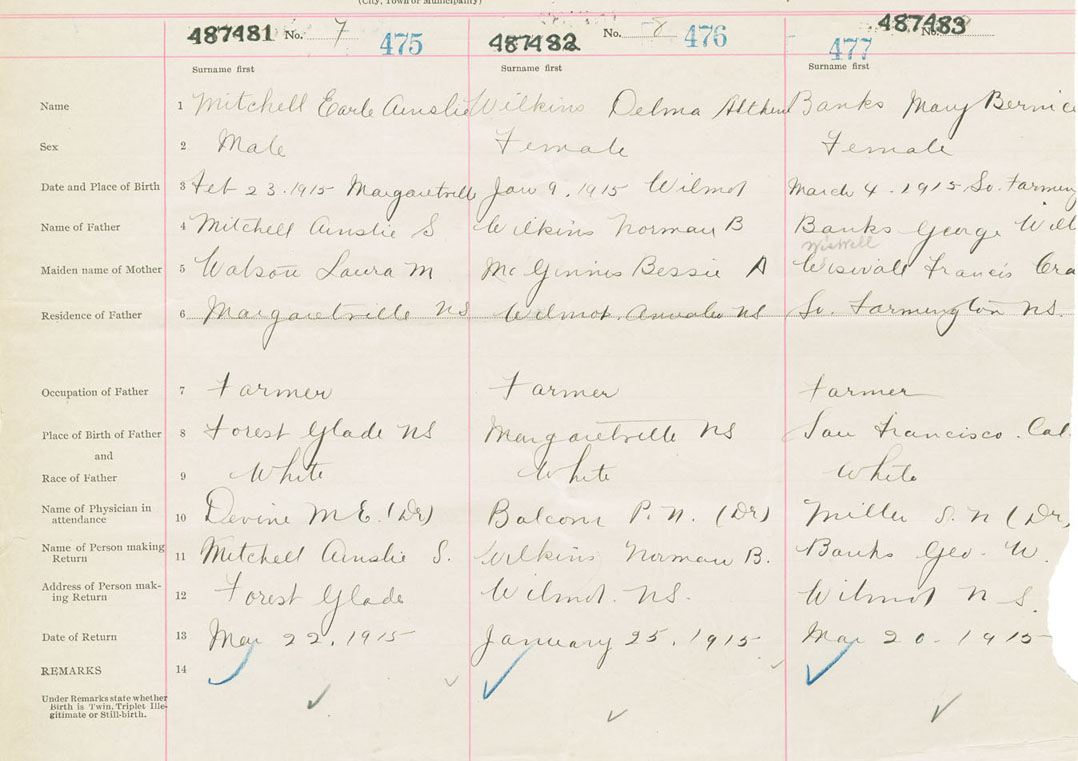 (City, Town or Municipality)
487481 No. 7 475 487482 No. 8 476 477 487483 No.
Surname first Surname first Surname first
Name 1 Mitchell Earle Ainslie Wilkins Delma Banks Mary Bernice
Sex 2 Male Female Female
Date and Place of Birth 3 Feb 23. 1915 Margaretville Jan 9, 1915 Wilmot March 4. 1915 So. Farming
Name of Father 4 Mitchell Ainslie S Wilkins Norman B Banks George Will
Maiden name of Mother 5 Watson Laura M McGinnis Bessie A Francis
Residence of Father 6 Margaretville NS Wilmot. NS So. Farmington NS.
Occupation of Father 7 Farmer Farmer Farmer
Place of Birth of Father 8 Forest Glade NS Margaretville NS San Francisco. Cal.
and
Race of Father 9 White White White
Name of Physician in
attendance 10 Devine M.E. (Dr) Balcom P. N. (Dr) Miller S. N (Dr)
Name of Person making
Return 11 Mitchell Ainslie S. Wilkins Norman B. Banks Geo. W.
Address of Person mak-
ing Return 12 Forest Glade Wilmot. NS. Wilmot N S.
Date of Return 13 Mar 22, 1915 January 25, 1915 Mar 20. 1915
REMARKS 14
Under Remarks state whether
Birth is Twin, Triplet Ille-
gitimate or Still-birth.